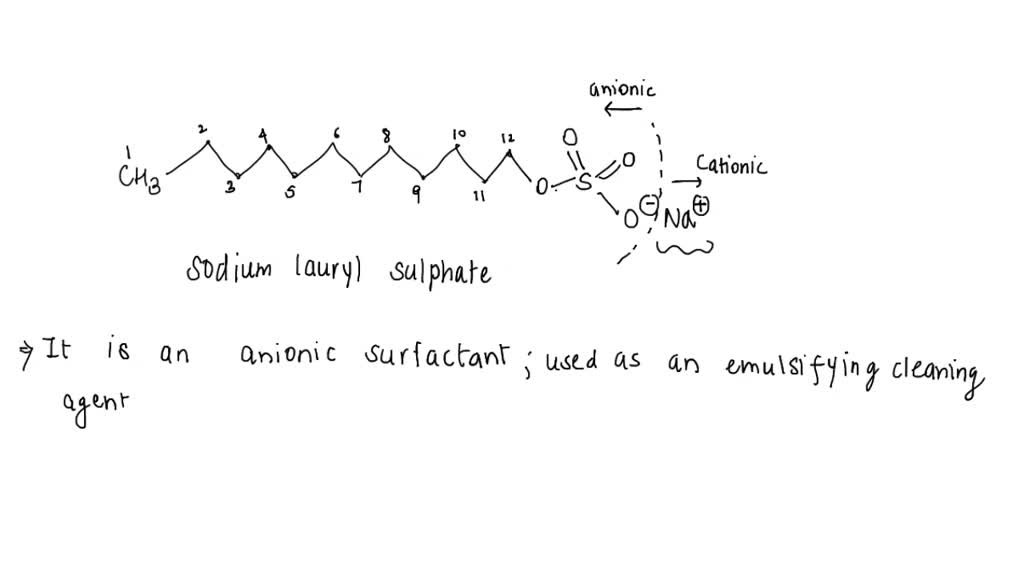 anionic
2 4 6 8 10 12
1
CH3
3 5 7 9 11
O
O
O S
Cationic
O⊖ Na⊕
Sodium lauryl sulphate
⇒ It is an anionic surfactant; used as an emulsifying cleaning
agent